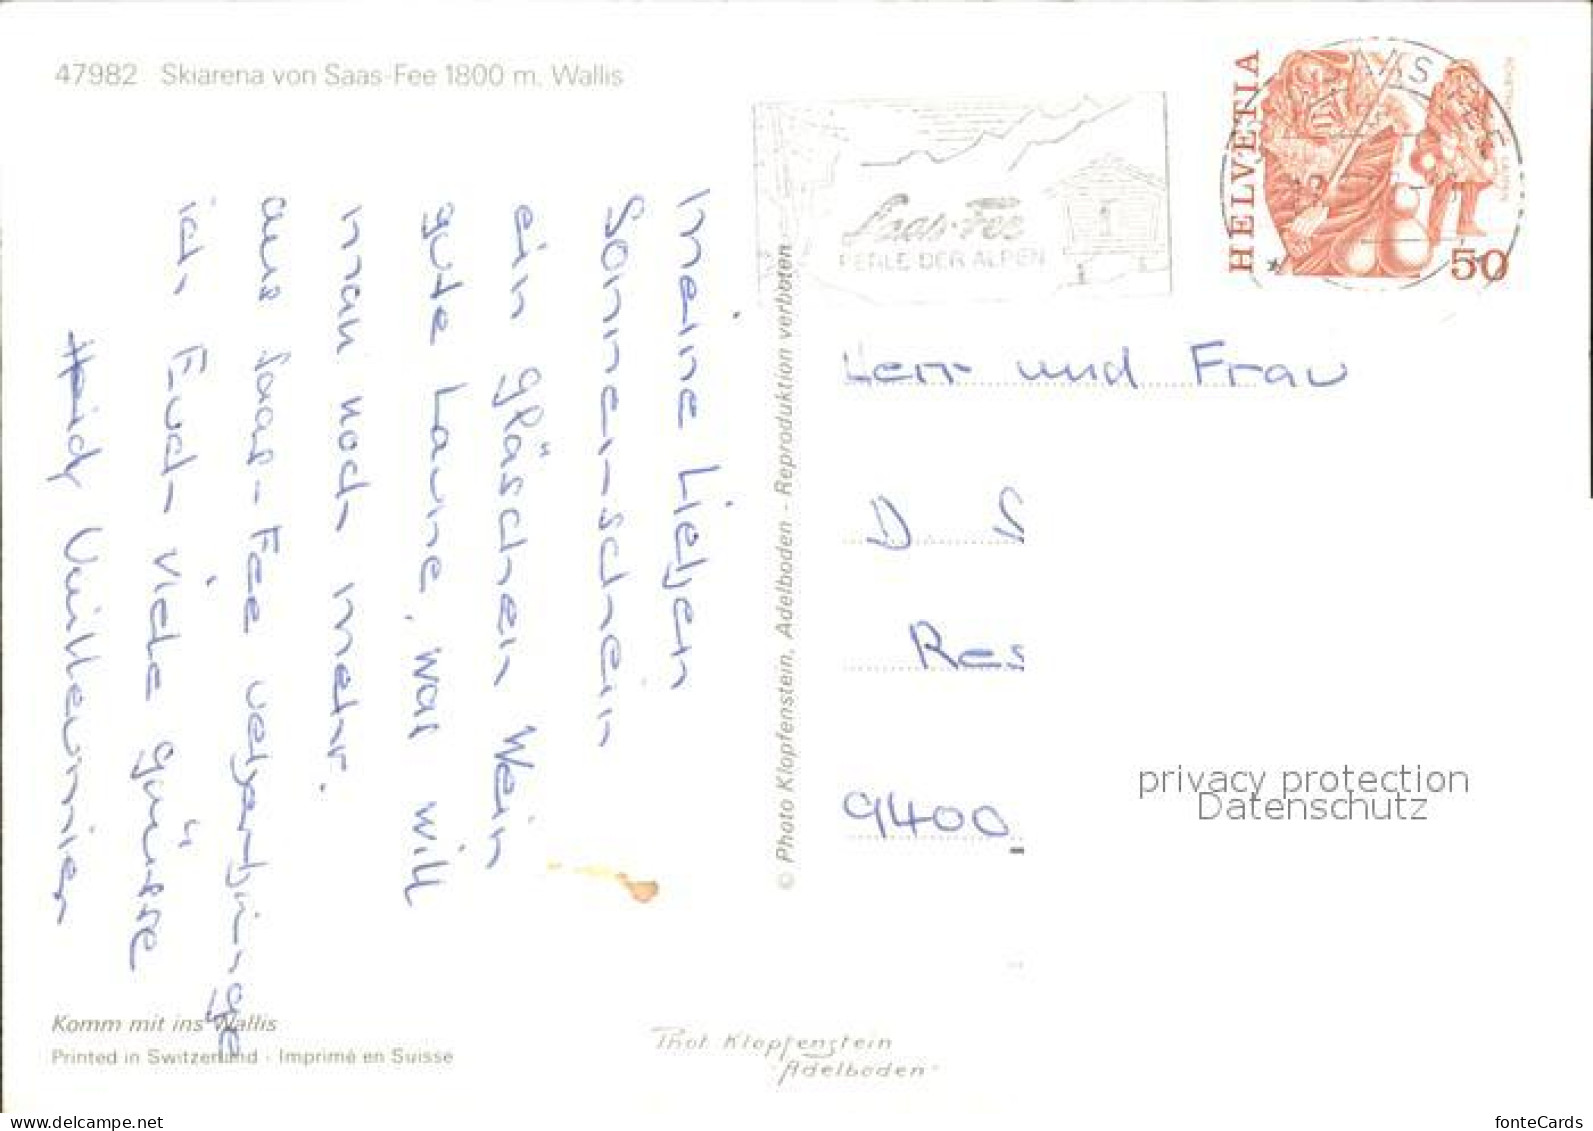 47982 Skiarena von Saas-Fee 1800 m, Wallis
Meine Lieben
Sonnenschein
ein gläschen Wein
gute Laune, was will
man noch mehr.
aus Saas-Fee
ich Euch viele grüsse
Vuilleumier
Komm mit ins Wallis
Printed in Switzerland · Imprimé en Suisse
© Photo Klopfenstein, Adelboden - Reproduktion verboten
Phot. Klopfenstein
Adelboden
Saas-Fee
PERLE DER ALPEN
HELVETIA
50
Herr und Frau
D. S
Res
9400
privacy protection
Datenschutz
www.delcampe.net
fonteCards